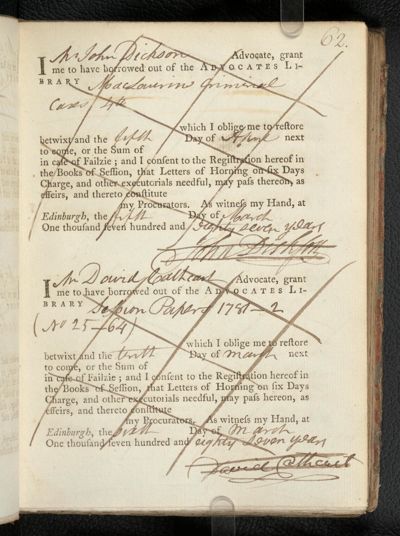 62.
I Mr John Dickson Advocate, grant
me to have borrowed out of the ADVOCATES LI-
BRARY Maclaurins Criminal
Cases, 4to
which I oblige me to reſtore
betwixt and the fifth Day of April next
to come, or the Sum of
in caſe of Failzie ; and I conſent to the Regiſtration hereof in
the Books of Seſſion, that Letters of Horning on ſix Days
Charge, and other executorials needful, may paſs thereon, as
effeirs, and thereto conſtitute
my Procurators. As witneſs my Hand, at
Edinburgh, the fifth Day of March
One thouſand ſeven hundred and eighty seven years
John Dickson
I Mr David Cathcart Advocate, grant
me to have borrowed out of the ADVOCATES LI-
BRARY Session Papers 1781-2
(No 25-64)
which I oblige me to reſtore
betwixt and the Day of March next
to come, or the Sum of
in caſe of Failzie ; and I conſent to the Regiſtration hereof in
the Books of Seſſion, that Letters of Horning on ſix Days
Charge, and other executorials needful, may paſs hereon, as
effeirs, and thereto conſtitute
my Procurators. As witneſs my Hand, at
Edinburgh, the sixth Day of March
One thouſand ſeven hundred and eighty seven years
David Cathcart